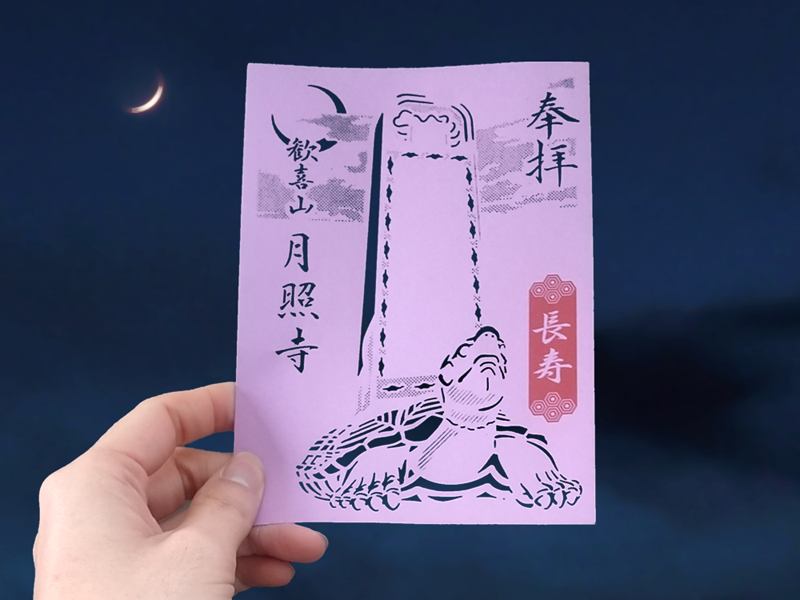 奉拝
長寿
歓喜山
月照寺